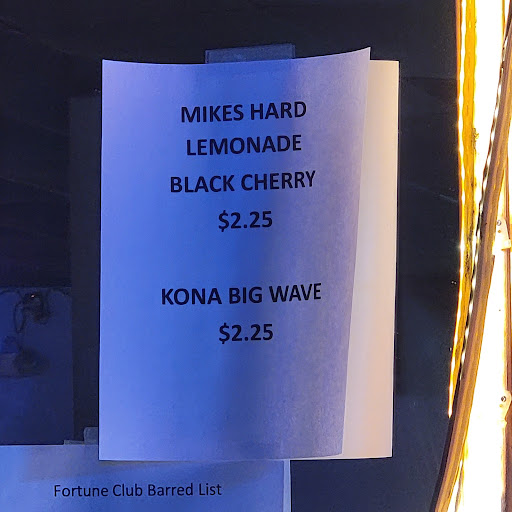 MIKES HARD
LEMONADE
BLACK CHERRY
$2.25
KONA BIG WAVE
$2.25
Fortune Club Barred List